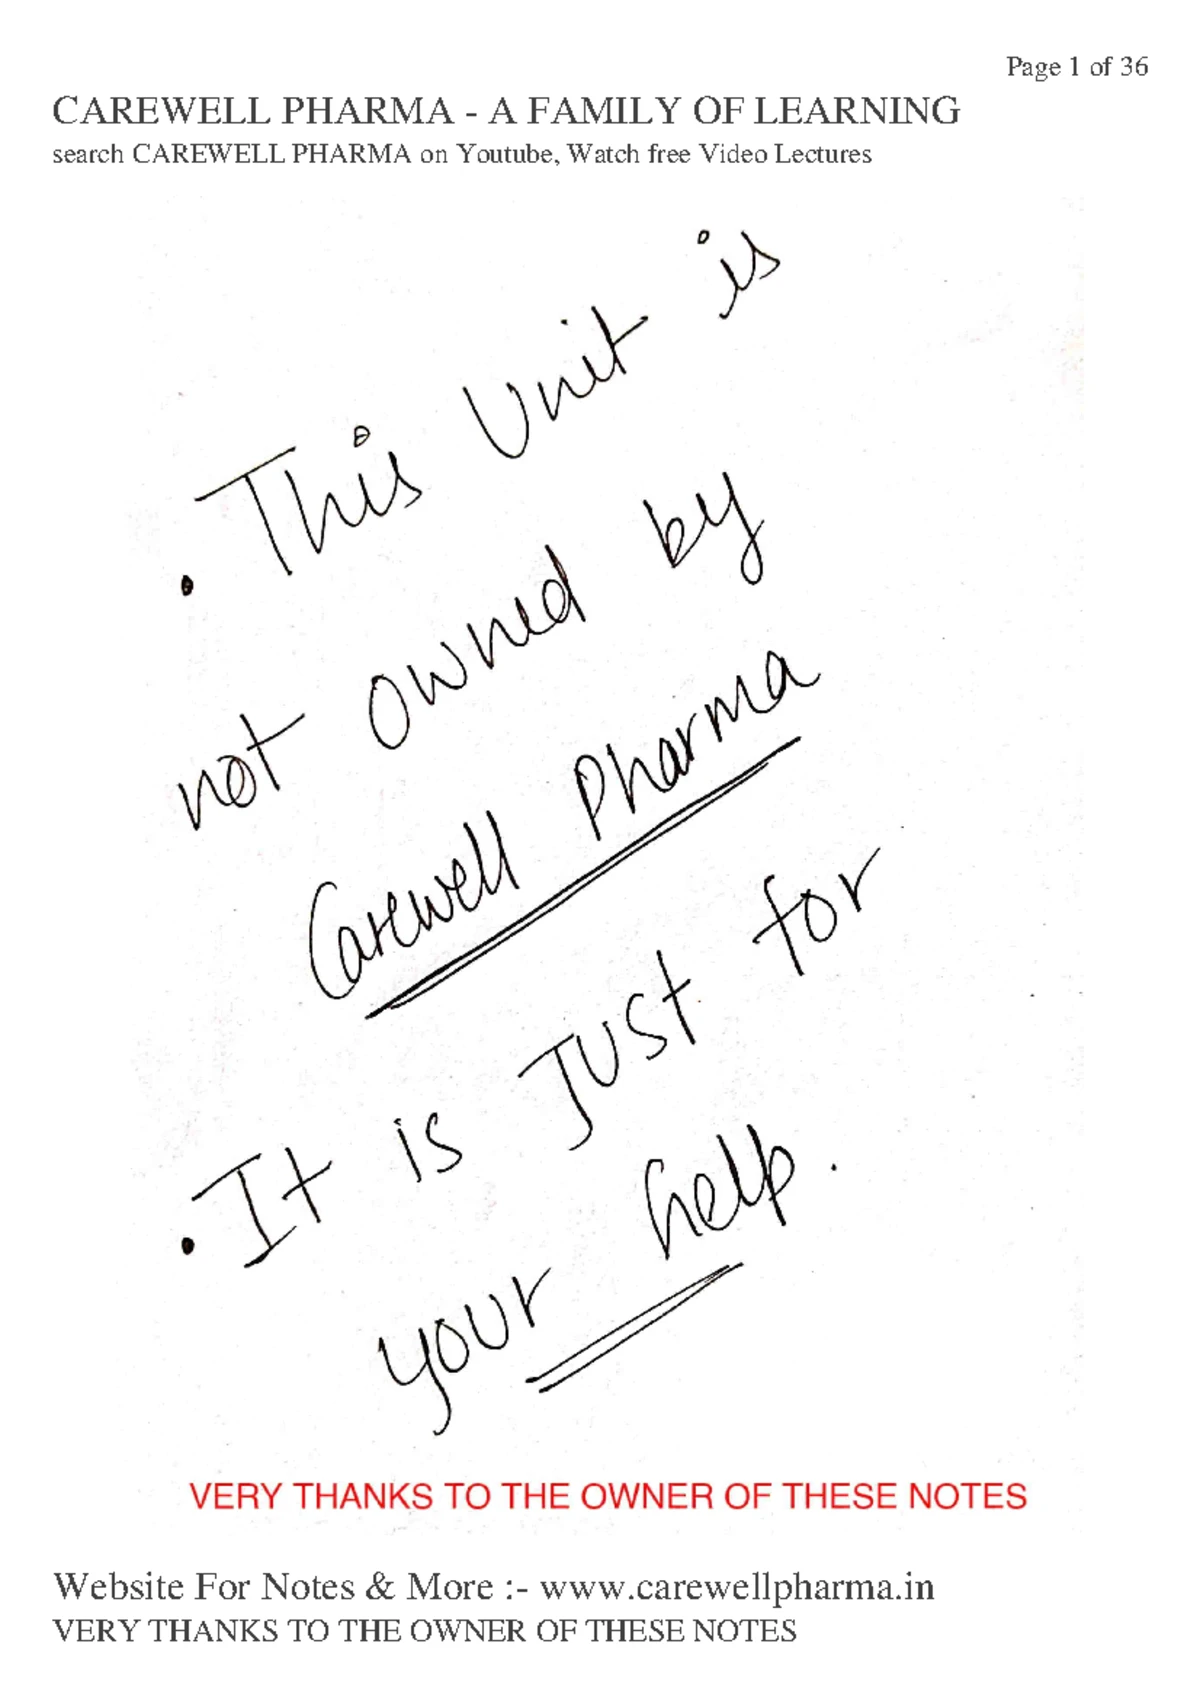 Page 1 of 36
CAREWELL PHARMA - A FAMILY OF LEARNING
search CAREWELL PHARMA on Youtube, Watch free Video Lectures
• This Unit is
not owned by
Carewell Pharma
• It is Just for
your help.
VERY THANKS TO THE OWNER OF THESE NOTES
Website For Notes & More :- www.carewellpharma.in
VERY THANKS TO THE OWNER OF THESE NOTES